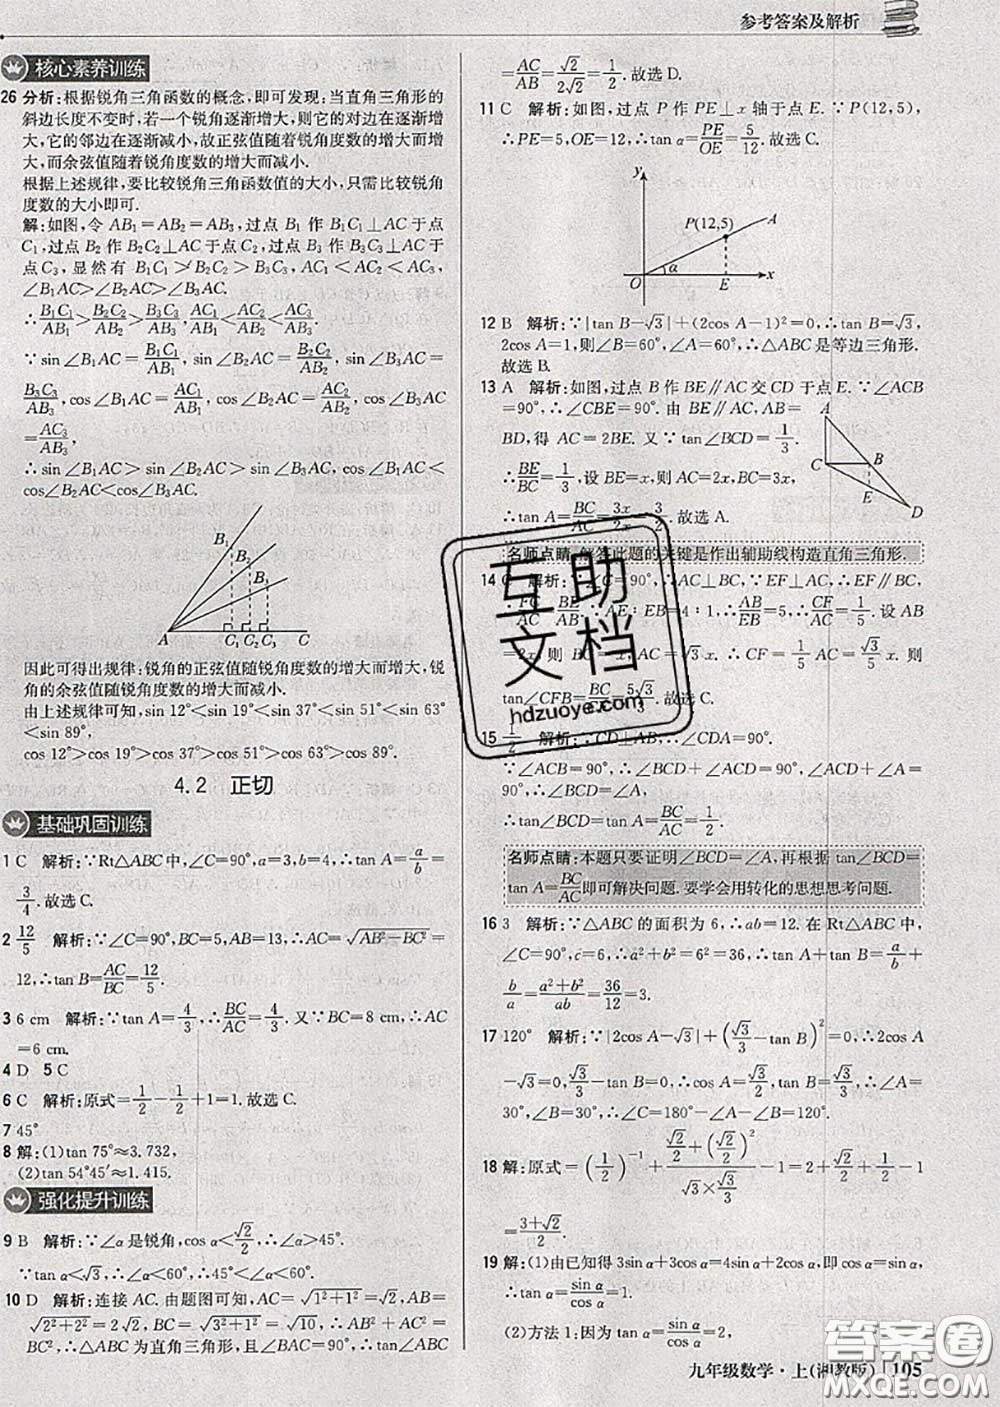 参考答案及解析
核心素养训练
26 分析:根据锐角三角函数的概念,即可发现:当直角三角形的
斜边长度不变时,若一个锐角逐渐增大,则它的对边在逐渐
增大,它的邻边在逐渐减小,故正弦值随着锐角度数的增大而增
大,而余弦值随着锐角度数的增大而减小.
根据上述规律,要比较锐角三角函数值的大小,只需比较锐角
度数的大小即可.
解:如图,令 AB₁=AB₂=AB₃,过点 B₁ 作 B₁C₁⊥AC 于点
C₁,过点 B₂ 作 B₂C₂⊥AC 于点 C₂,过点 B₃ 作 B₃C₃⊥AC 于
点 C₃,显然有 B₁C₁>B₂C₂>B₃C₃,AC₁<AC₂<AC₃,
∠B₁AC>∠B₂AC>∠B₃AC.
∴B₁C₁/AB₁>B₂C₂/AB₂>B₃C₃/AB₃,AC₁/AB₁<AC₂/AB₂<AC₃/AB₃.
∵sin∠B₁AC=B₁C₁/AB₁,sin∠B₂AC=B₂C₂/AB₂,sin∠B₃AC=
B₃C₃/AB₃,cos∠B₁AC=AC₁/AB₁,cos∠B₂AC=AC₂/AB₂,cos∠B₃AC
=AC₃/AB₃,
∴sin∠B₁AC>sin∠B₂AC>sin∠B₃AC,cos∠B₁AC<
cos∠B₂AC<cos∠B₃AC.
B₁
B₂
B₃
A C₁ C₂ C₃ C
因此可得出规律:锐角的正弦值随锐角度数的增大而增大,锐
角的余弦值随锐角度数的增大而减小.
由上述规律可知,sin 12°<sin 19°<sin 37°<sin 51°<sin 63°
<sin 89°,
cos 12°>cos 19°>cos 37°>cos 51°>cos 63°>cos 89°.
4.2 正切
基础巩固训练
1 C 解析:∵Rt△ABC中,∠C=90°,a=3,b=4,∴tan A=a/b=
3/4.故选C.
2 12/5 解析:∵∠C=90°,BC=5,AB=13,∴AC=√(AB²−BC²)=
12,∴tan B=AC/BC=12/5.
3 6 cm 解析:∵tan A=4/3,∴BC/AC=4/3.又∵BC=8 cm,∴AC
=6 cm.
4 D 5 C
6 C 解析:原式=1/2−1/2+1=1.故选C.
7 45°
8 解:(1)tan 75°≈3.732,
(2)tan 54°45′≈1.415.
强化提升训练
9 B 解析:∵∠α是锐角,cos α<√2/2,∴∠α>45°.
∵tan α<√3,∴∠α<60°,∴45°<∠α<60°.
10 D 解析:连接 AC.由题图可知,AC=√(1²+1²)=√2,AB=
√(2²+2²)=2√2,BC=√(3²+1²)=√10,∴AB²+AC²
=BC²,∴△ABC 为直角三角形,且∠CAB=90°.∴tan B
=AC/AB=√2/2√2=1/2.故选 D.
11 C 解析:如图,过点 P 作 PE⊥x 轴于点 E.∵P(12,5),
∴PE=5,OE=12,∴tan α=PE/OE=5/12.故选 C.
y
P(12,5) A
α
O E x
12 B 解析:∵|tan B−√3|+(2cos A−1)²=0,∴tan B=√3,
2cos A=1,则∠B=60°,∠A=60°,∴△ABC是等边三角形.
故选 B.
13 A 解析:如图,过点 B 作 BE∥AC 交 CD 于点 E.∵∠ACB
=90°,∴∠CBE=90°.由 BE∥AC,AB=
BD,得 AC=2BE.又∵tan∠BCD=1/3,
∴BE/BC=1/3,设 BE=x,则 AC=2x,BC=3x,
∴tan A=BC/AC=3x/2x=3/2.故选A.
A
C B
E
D
名师点睛:解答此题的关键是作出辅助线构造直角三角形.
14 C 解析:∵∠C=90°,∴AC⊥BC,∵EF⊥AC,∴EF∥BC,
∴FC/AC=BE/AB.∵AE∶EB=4∶1,∴AB/EB=5,∴CF/AC=1/5.设 AB
=2x,则 BC=x,AC=√3x.∴CF=1/5 AC=√3/5 x.∴
tan∠CFB=BC/CF=5√3/3.故选C.
15 1/2 解析:∵CD⊥AB,∴∠CDA=90°,
∵∠ACB=90°,∴∠BCD=∠A,
∴tan∠BCD=tan A=BC/AC=1/2.
名师点睛:本题只要证明∠BCD=∠A,再根据 tan∠BCD=
tan A=BC/AC即可解决问题.要学会用转化的思想思考问题.
16 3 解析:∵△ABC 的面积为 6,∴ab=12.在 Rt△ABC 中,
∠C=90°,c=6,∴a²+b²=6²=36,∴tan A+tan B=a/b+
b/a=(a²+b²)/ab=36/12=3.
17 120° 解析:∵|2cos A−√3|+(√3/3−tan B)²=0,∴2cos A
−√3=0,√3/3−tan B=0,∴cos A=√3/2,tan B=√3/3,∴∠A=
30°,∠B=30°,∴∠C=180°−∠A−∠B=120°.
18 解:原式=(1/2)⁻¹+(√2/2+(√2/2)²)/(√3/2×√3/3)=1/2+√2+1−1
=(3+√2)/2.
19 解:(1)由已知得3sin α+3cos α=4sin α+2cos α,即cos α=
sin α,∴tan α=sin α/cos α=1.
(2)方法 1:因为 tan α=sin α/cos α=2,
互助
文档
hdzuoye.com
答案圈
MXQE.COM
九年级数学·上(湘教版) 105